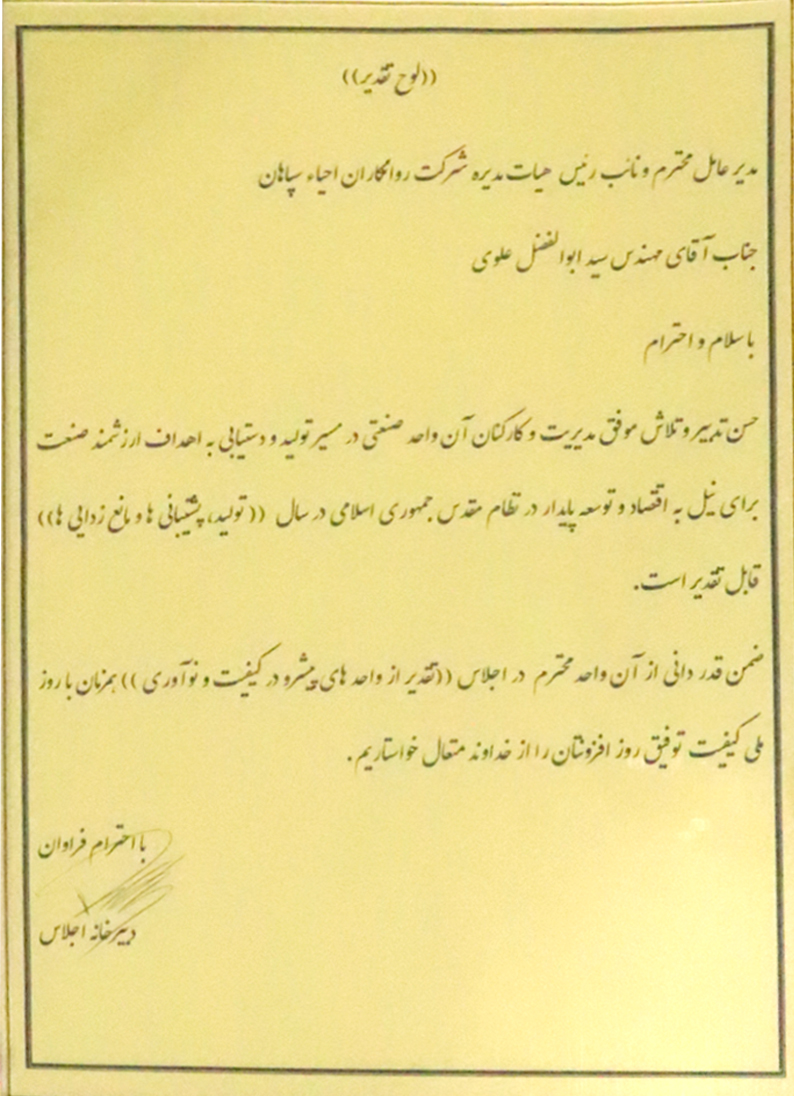 ((لوح تقدیر))
مدیر عامل محترم و نائب رئیس هیات مدیره شرکت روانکاران احیاء سپاهان
جناب آقای مهندس سید ابوالفضل علوی
با سلام و احترام
حسن تدبیر و تلاش موفق مدیریت و کارکنان آن واحد صنعتی در مسیر تولید و دستیابی به اهداف ارزشمند صنعت
برای نیل به اقتصاد و توسعه پایدار در نظام مقدس جمهوری اسلامی در سال ((تولید، پشتیبانی ها و مانع زدایی ها))
قابل تقدیر است.
ضمن قدر دانی از آن واحد محترم در اجلاس ((تقدیر از واحد های پیشرو در کیفیت و نوآوری)) همزمان با روز
ملی کیفیت توفیق روز افزونتان را از خداوند متعال خواستاریم.
با احترام فراوان
دبیرخانه اجلاس